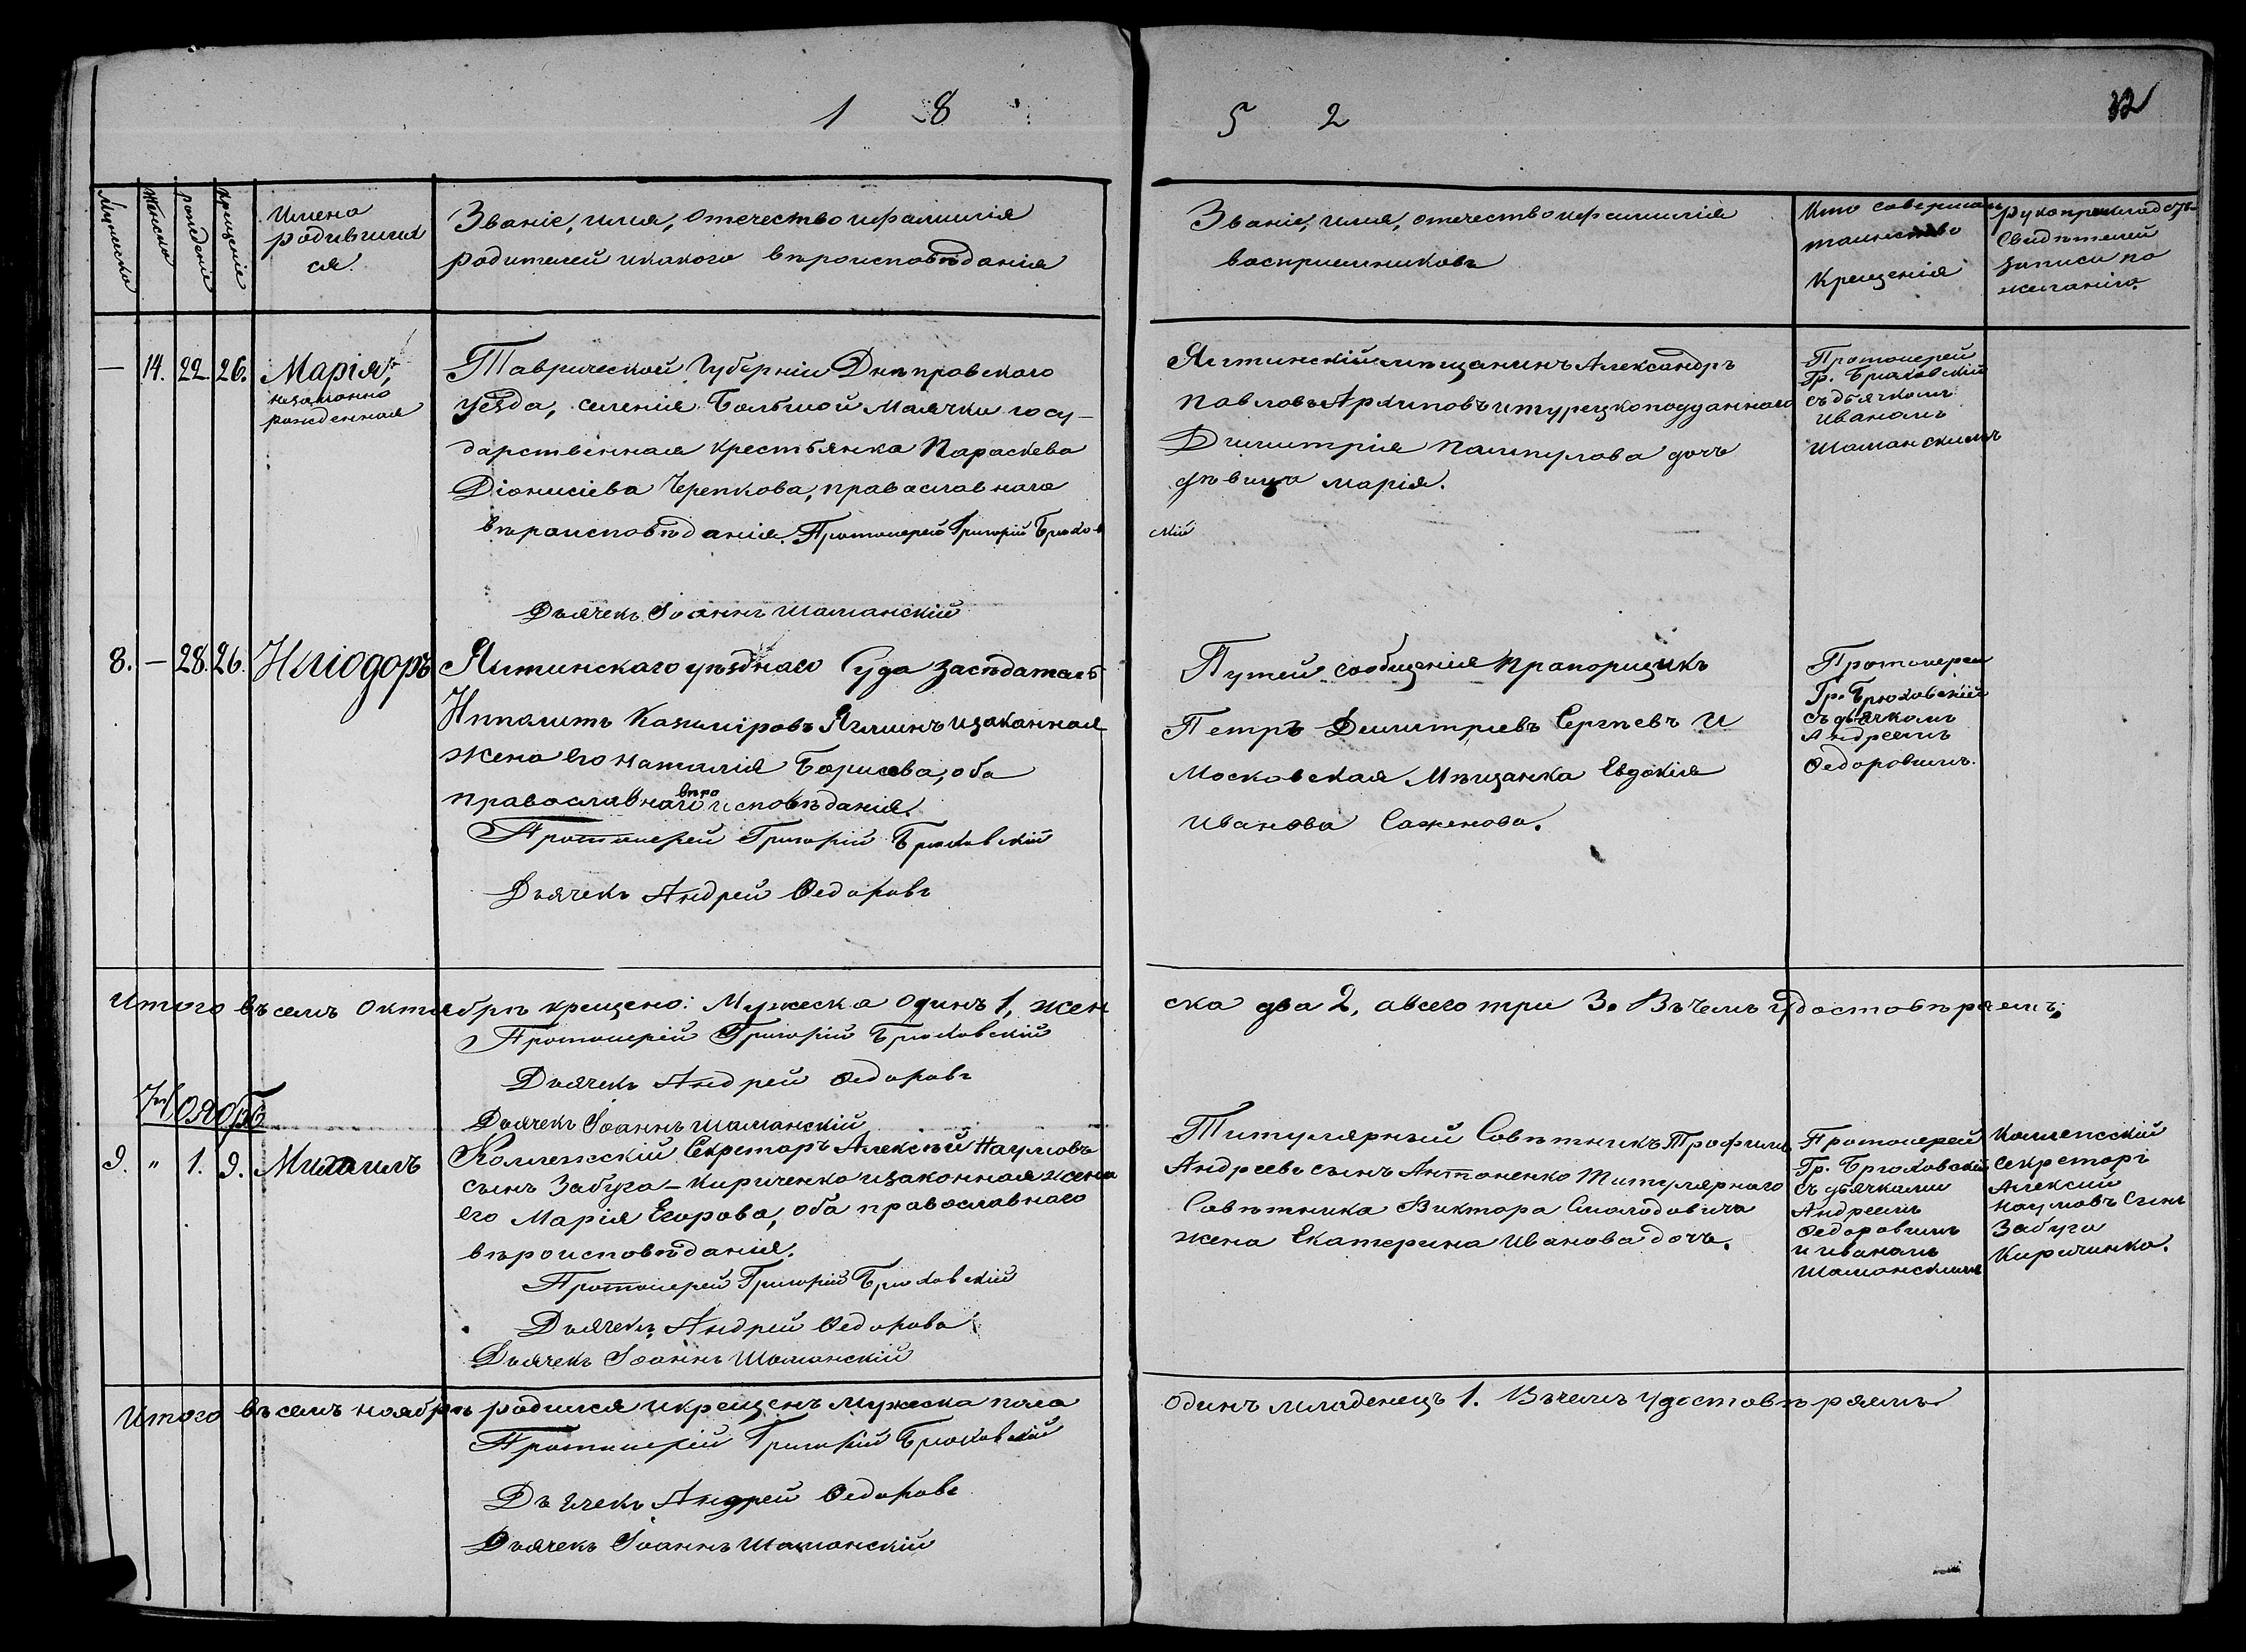 1 8
5 2
32
Мужеска
Женска
рожденія
крещенія
Имена
родивших
ся.
Званіе, имя, отечество и фамилія
родителей и какого вѣроисповѣданія
Званіе, имя, отечество и фамилія
воспріемниковъ
Кто совершалъ
таинство
Крещенія
рукоприкладство
Свидѣтелей
записи по
желанію.
— 14. 22. 26. Марія,
незаконно
рожденная
Таврической Губерніи Днѣпровского
уезда, селенія Большой Маячки госу-
дарственная крестьянка Параскева
Діонисіева Черепкова, православнаго
вѣроисповѣданія. Протоіерей Григорій Брюхов
скій
Дьячекъ Іоаннъ Шаманскій
Ялтинскій мѣщанинъ Александръ
Павловъ Архиповъ и турецкоподданнаго
Димитрія Пампулова дочь
дѣвица Марія.
Протоіерей
Гр. Брюховскій
съ дьячкомъ
Иваномъ
Шаманскимъ
8. — 28. 26. Иліодоръ
Ялтинскаго уѣзднаго Суда засѣдатель
Ипполитъ Казиміровъ Яглинъ и законная
жена его Наталія Борисова, оба
православнаго вѣроисповѣданія.
Протоіерей Григорій Брюховскій
Дьячекъ Андрей Ѳедоровъ
Путей сообщенія Прапорщикъ
Петръ Димитріевъ Сергѣевъ и
Московская Мѣщанка Евдокія
Иванова Саженова.
Протоіерей
Гр. Брюховскій
съ дьячкомъ
Андреемъ
Ѳедоровымъ.
Итого въ семъ Октябрѣ крещено: Мужеска Одинъ 1, жен
ска два 2, а всего три 3. Въ чемъ удостовѣряемъ:
Протоіерей Григорій Брюховскій
Дьячекъ Андрей Ѳедоровъ
Дьячекъ Іоаннъ Шаманскій
Ноябрь
9. " 1. 9. Михаилъ
Коллежскій Секретарь Алексѣй Наумовъ
сынъ Забуга-Кириченко и законная жена
его Марія Егорова, оба православнаго
вѣроисповѣданія.
Протоіерей Григорій Брюховскій
Дьячекъ Андрей Ѳедоровъ
Дьячекъ Іоаннъ Шаманскій
Титулярный Совѣтникъ Трофимъ
Андреевъ сынъ Антоненко Титулярнаго
Совѣтника Виктора Смолодовича
жена Екатерина Иванова дочь.
Протоіерей
Гр. Брюховскій
съ дьячками
Андреемъ
Ѳедоровымъ
и Иваномъ
Шаманскимъ
Коллежскій
Секретарь
Алексѣй
Наумовъ Сынъ
Забуга
Кириченко.
Итого въ семъ ноябрѣ родился и крещенъ мужеска пола
одинъ младенецъ 1. Въ чемъ удостовѣряемъ
Протоіерей Григорій Брюховскій
Дьячекъ Андрей Ѳедоровъ
Дьячекъ Іоаннъ Шаманскій